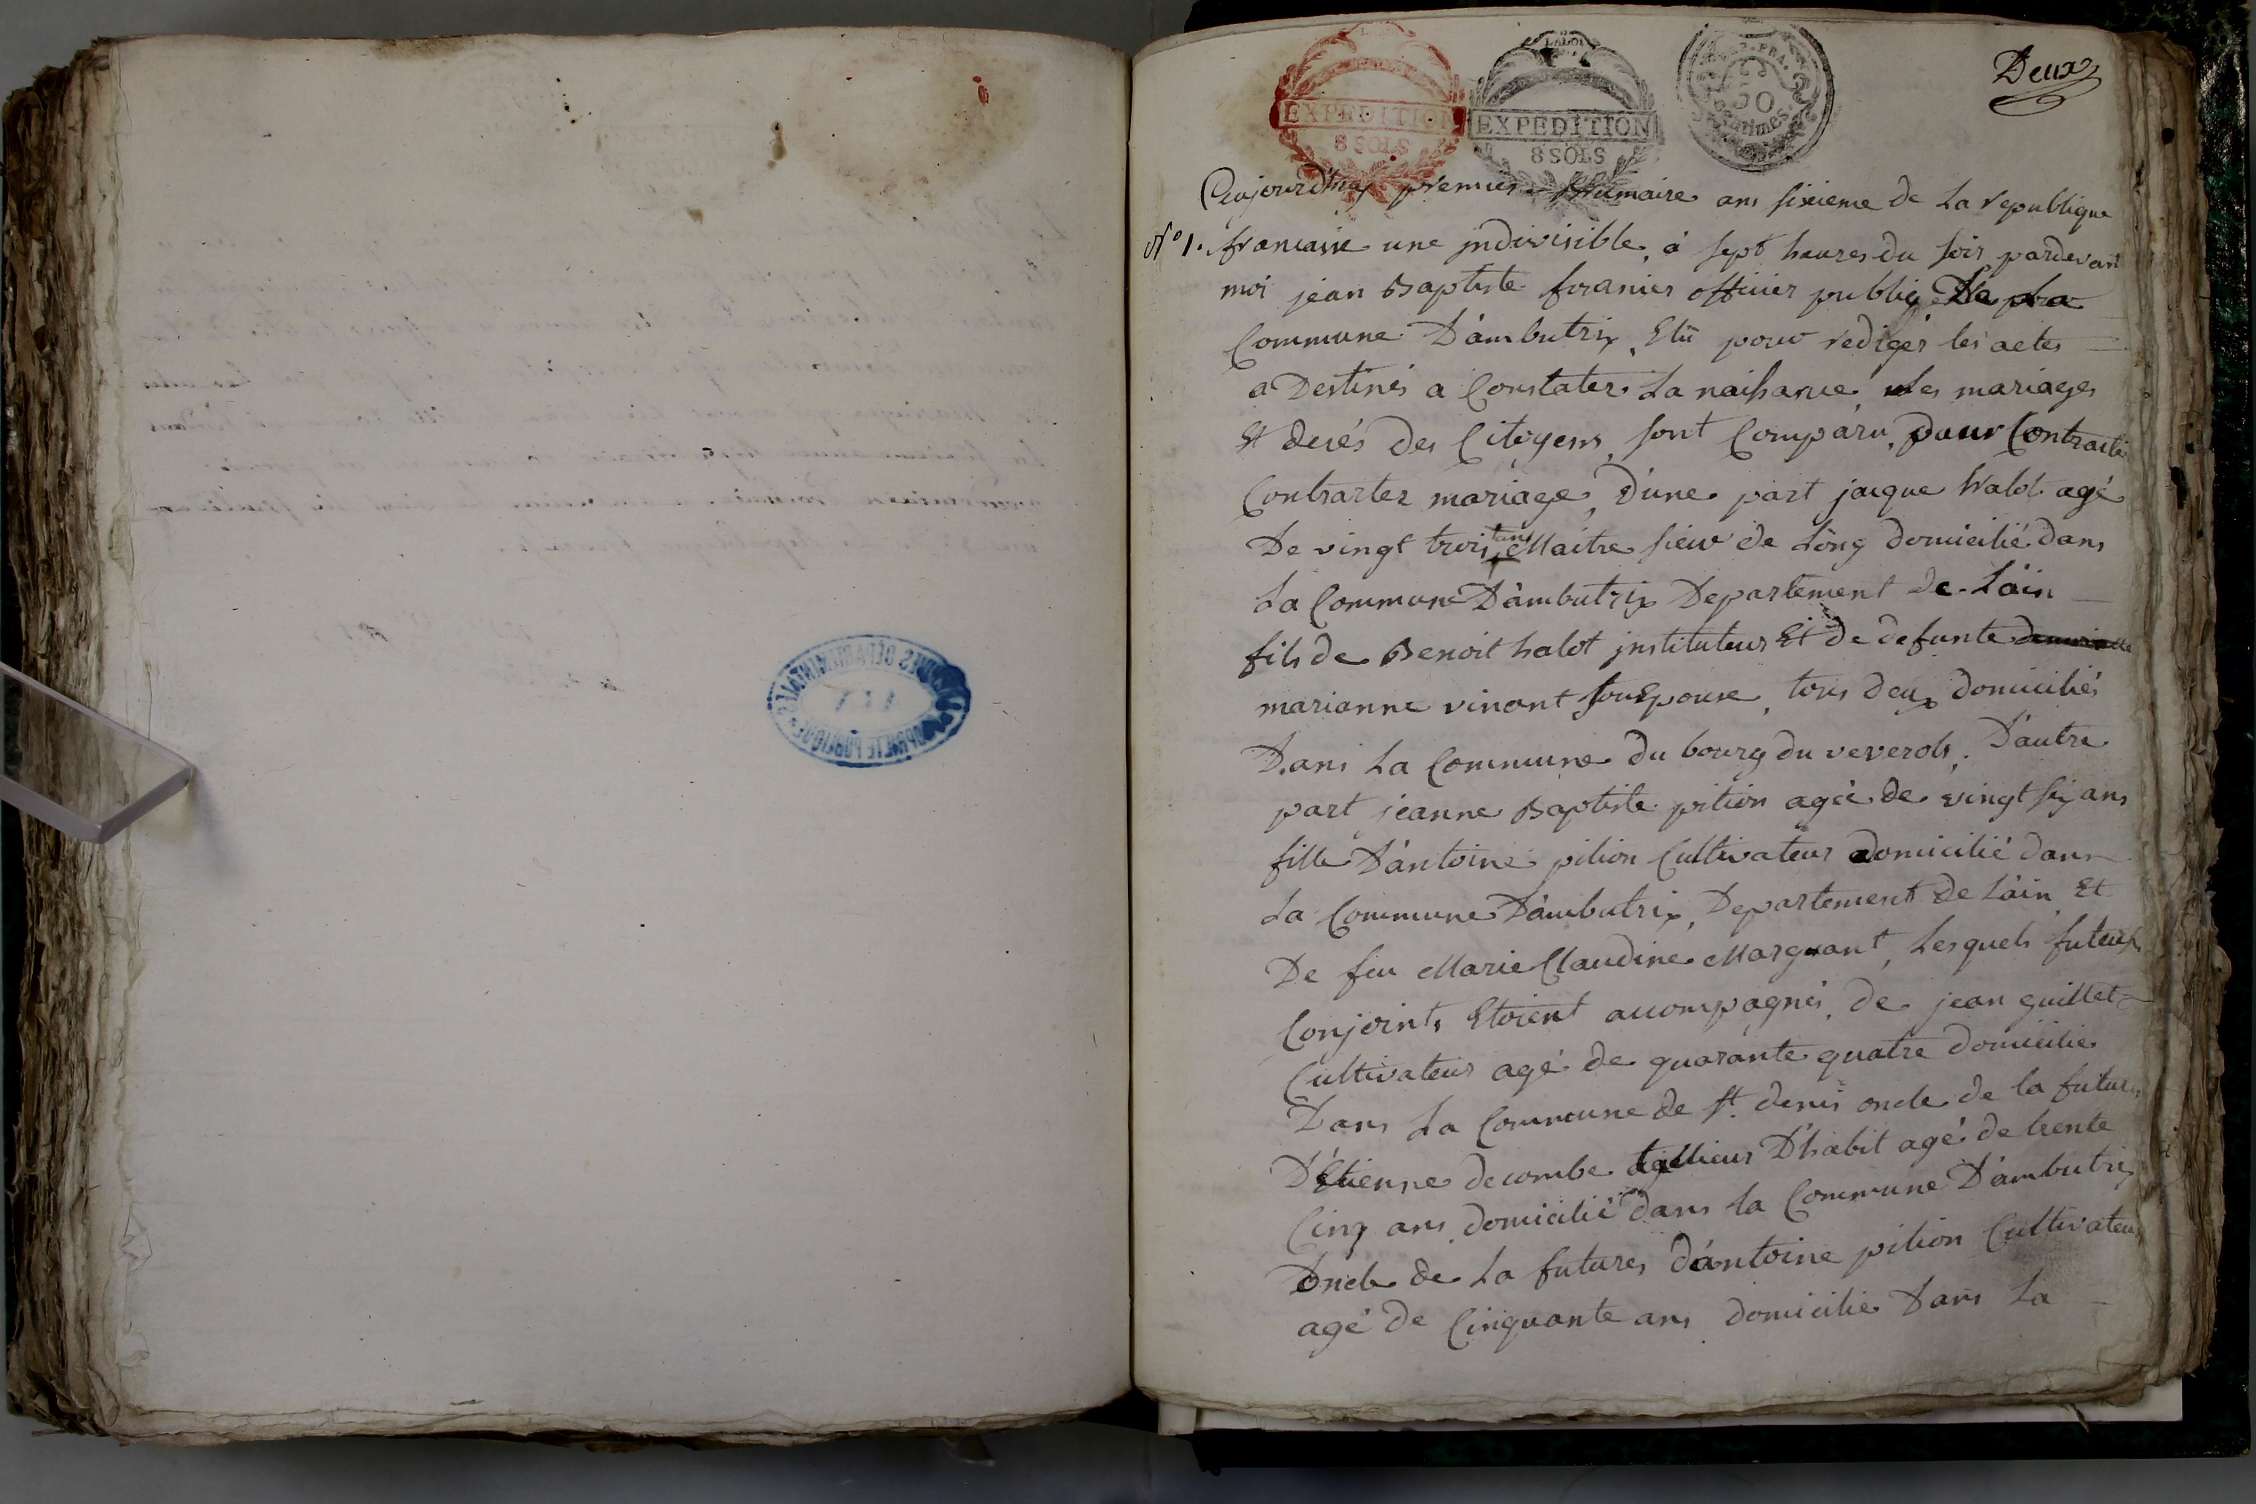 Deux
EXPEDITION
8 SOLS
LA LOI
EXPEDITION
8 SOLS
50
Centimes
Aujourd'huy premier Brumaire ans sixieme de La republique
N° 1. francaise une jndivisible, à sept heures du soir pardevant
moi jean Baptiste foranier officier public De La
Commune D'ambutrix, Elü pour rediger les actes
a Destinés a Constater La naissance, Les mariages
Et decés des Citoyens, sont Comparu, pour Contracter
Contracter mariage, D'une part jacque halot agé
De vingt trois ans Maitre sieur de Long domicilié dans
La Commune D'ambutrix Departement de L'ain
fils de Benoit halot jnstituteur Et de defunte
marianne vinont son Epouse, tous deux domiciliés
Dans La Commune du bourg du veverols. D'autre
part jeanne Baptiste pition agée de vingt six ans
fille D'antoine pition Cultivateur domicilié dans
La Commune D'ambutrix, Departement de L'ain Et
De feu Marie Claudine Marguant, Lesquels futeurs
Conjoints Etoient accompagnés, de jean guillet
Cultivateur agé de quarante quatre domicilie
Dans La Commune de St. denis oncle de la future
D'Etienne decombe tallieur D'habit agé de trente
Cinq ans domicilié dans la Commune D'ambutrix
Oncle de La futures d'antoine pition Cultivateur
agé de Cinquante ans domicilie Dans La